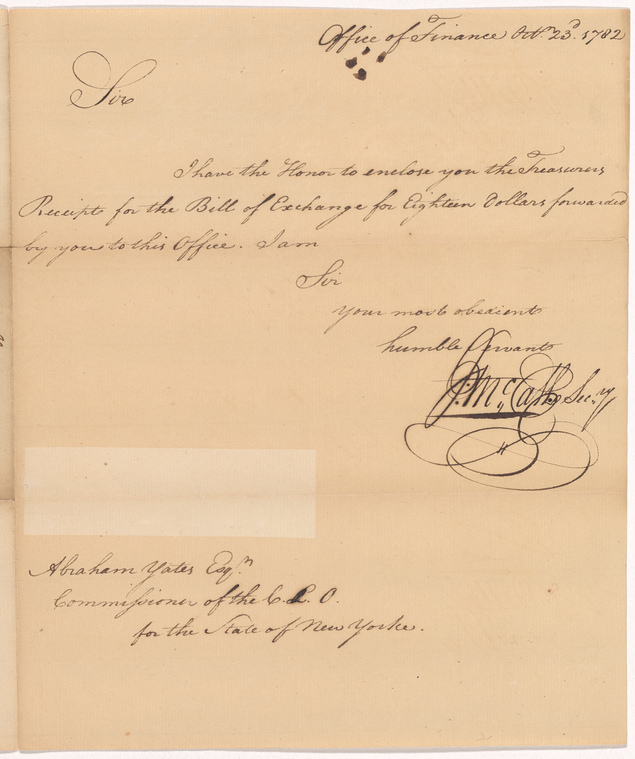 Office of Finance Octr. 23d. 1782
Sir
I have the Honor to enclose you the Treasurers
Receipt for the Bill of Exchange for Eighteen Dollars forwarded
by you to this Office. I am
Sir
your most obedient
humble Servant
J: McCall Secy
Abraham Yates Esqr.
Commissioner of the C. L O.
for the State of New Yorke.